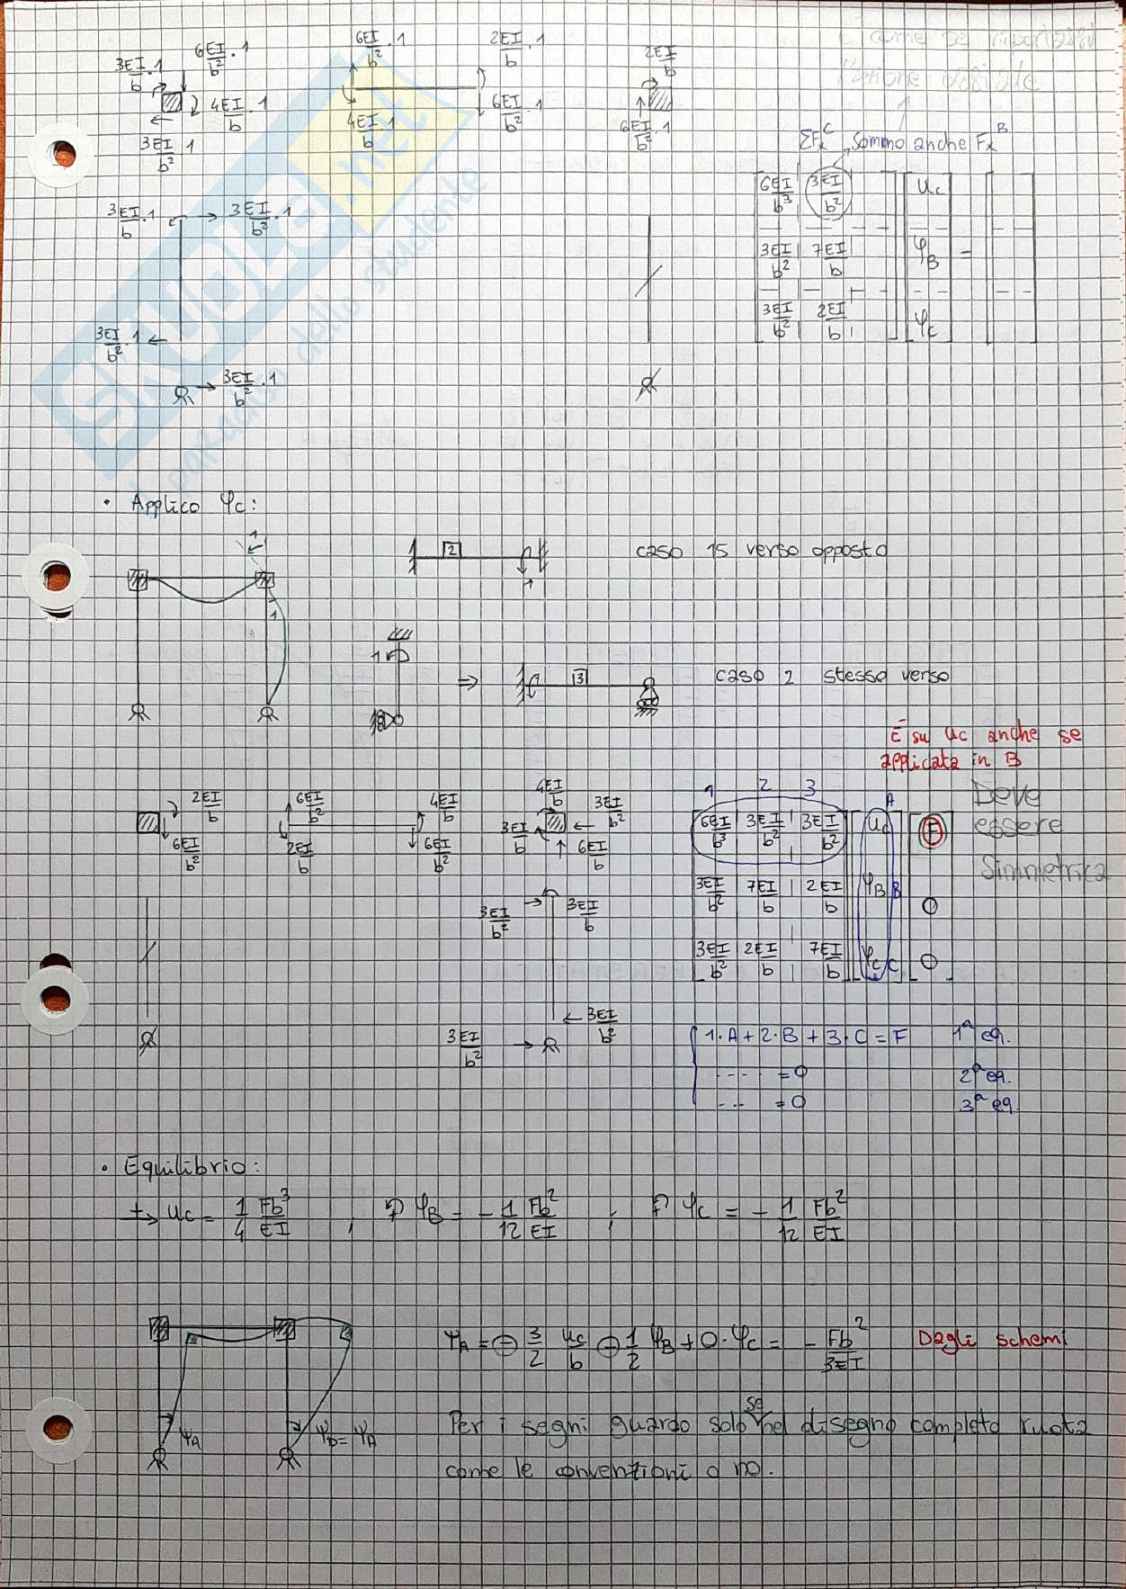 3EI/b · 1
6EI/b² · 1
4EI/b · 1
3EI/b² · 1
6EI/b² · 1
2EI/b · 1
4EI/b · 1
6EI/b² · 1
2EI/b
6EI/b² · 1
come se
ΣFₓᶜ, Sommo anche Fₓᴮ
3EI/b · 1
3EI/b² · 1
3EI/b² · 1
3EI/b² · 1
6EI/b³ 3EI/b² u_c
3EI/b² 7EI/b φ_B =
3EI/b² 2EI/b φ_c
SKUOLA.net
dello studente
• Applico φ_c:
1
2
1
caso 15 verso opposto
1
1
⇒ 3
caso 2 stesso verso
È su u_c anche se
applicata in B
2EI/b
6EI/b²
6EI/b²
2EI/b
4EI/b
6EI/b²
4EI/b
3EI/b²
3EI/b
6EI/b²
3EI/b²
3EI/b
3EI/b²
3EI/b²
1 2 3 A
6EI/b³ 3EI/b² 3EI/b² u_c F
3EI/b² 7EI/b 2EI/b φ_B B 0
3EI/b² 2EI/b 7EI/b φ_c C 0
Deve
essere
Simmetrica
1·A + 2·B + 3·C = F 1ª eq.
--- = 0 2ª eq.
--- = 0 3ª eq
• Equilibrio:
+→ u_c = 1/4 Fb³/EI ; φ_B = - 1/12 Fb²/EI ; φ_c = - 1/12 Fb²/EI
φ_A = ⊖ 3/2 u_c/b ⊖ 1/2 φ_B + 0·φ_c = - Fb²/3EI Dagli schemi
φ_A
φ_D = φ_A
Per i segni guardo solo se nel disegno completo ruota
come le convenzioni o no.